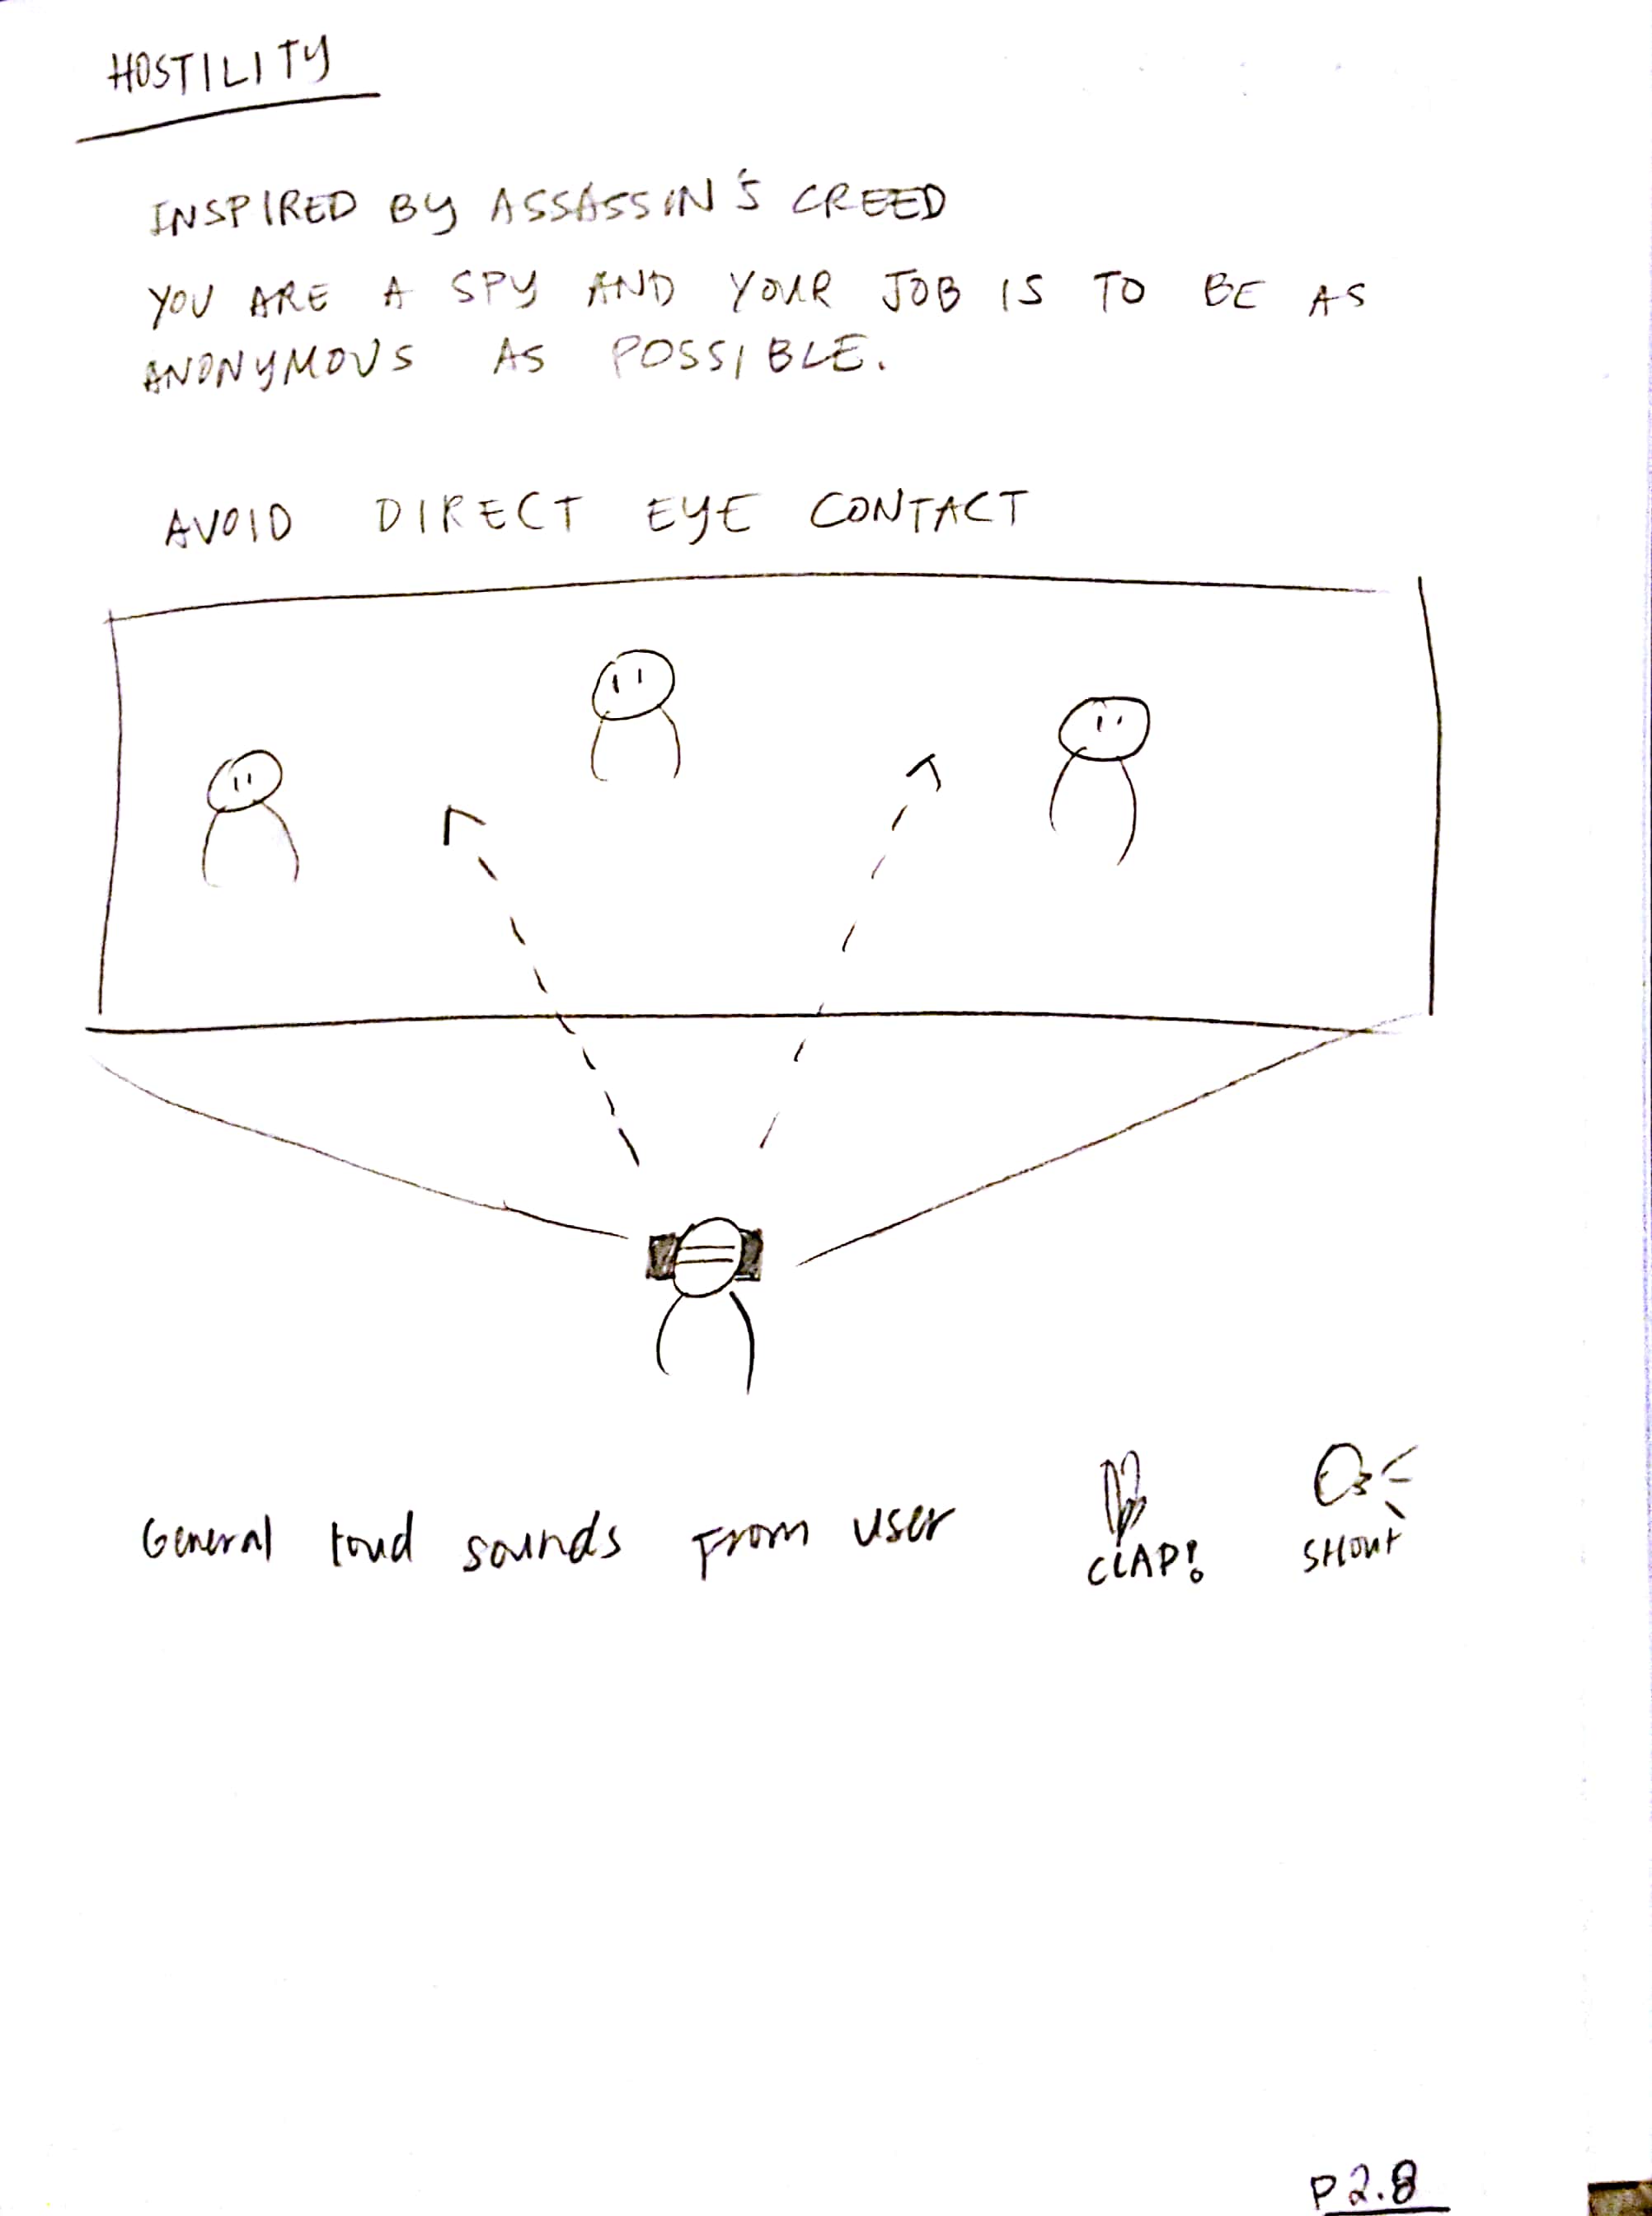 HOSTILITY
INSPIRED BY ASSASSIN'S CREED
YOU ARE A SPY AND YOUR JOB IS TO BE AS
ANONYMOUS AS POSSIBLE.
AVOID DIRECT EYE CONTACT
General loud sounds From user
CLAP!
SHOUT
P2.8